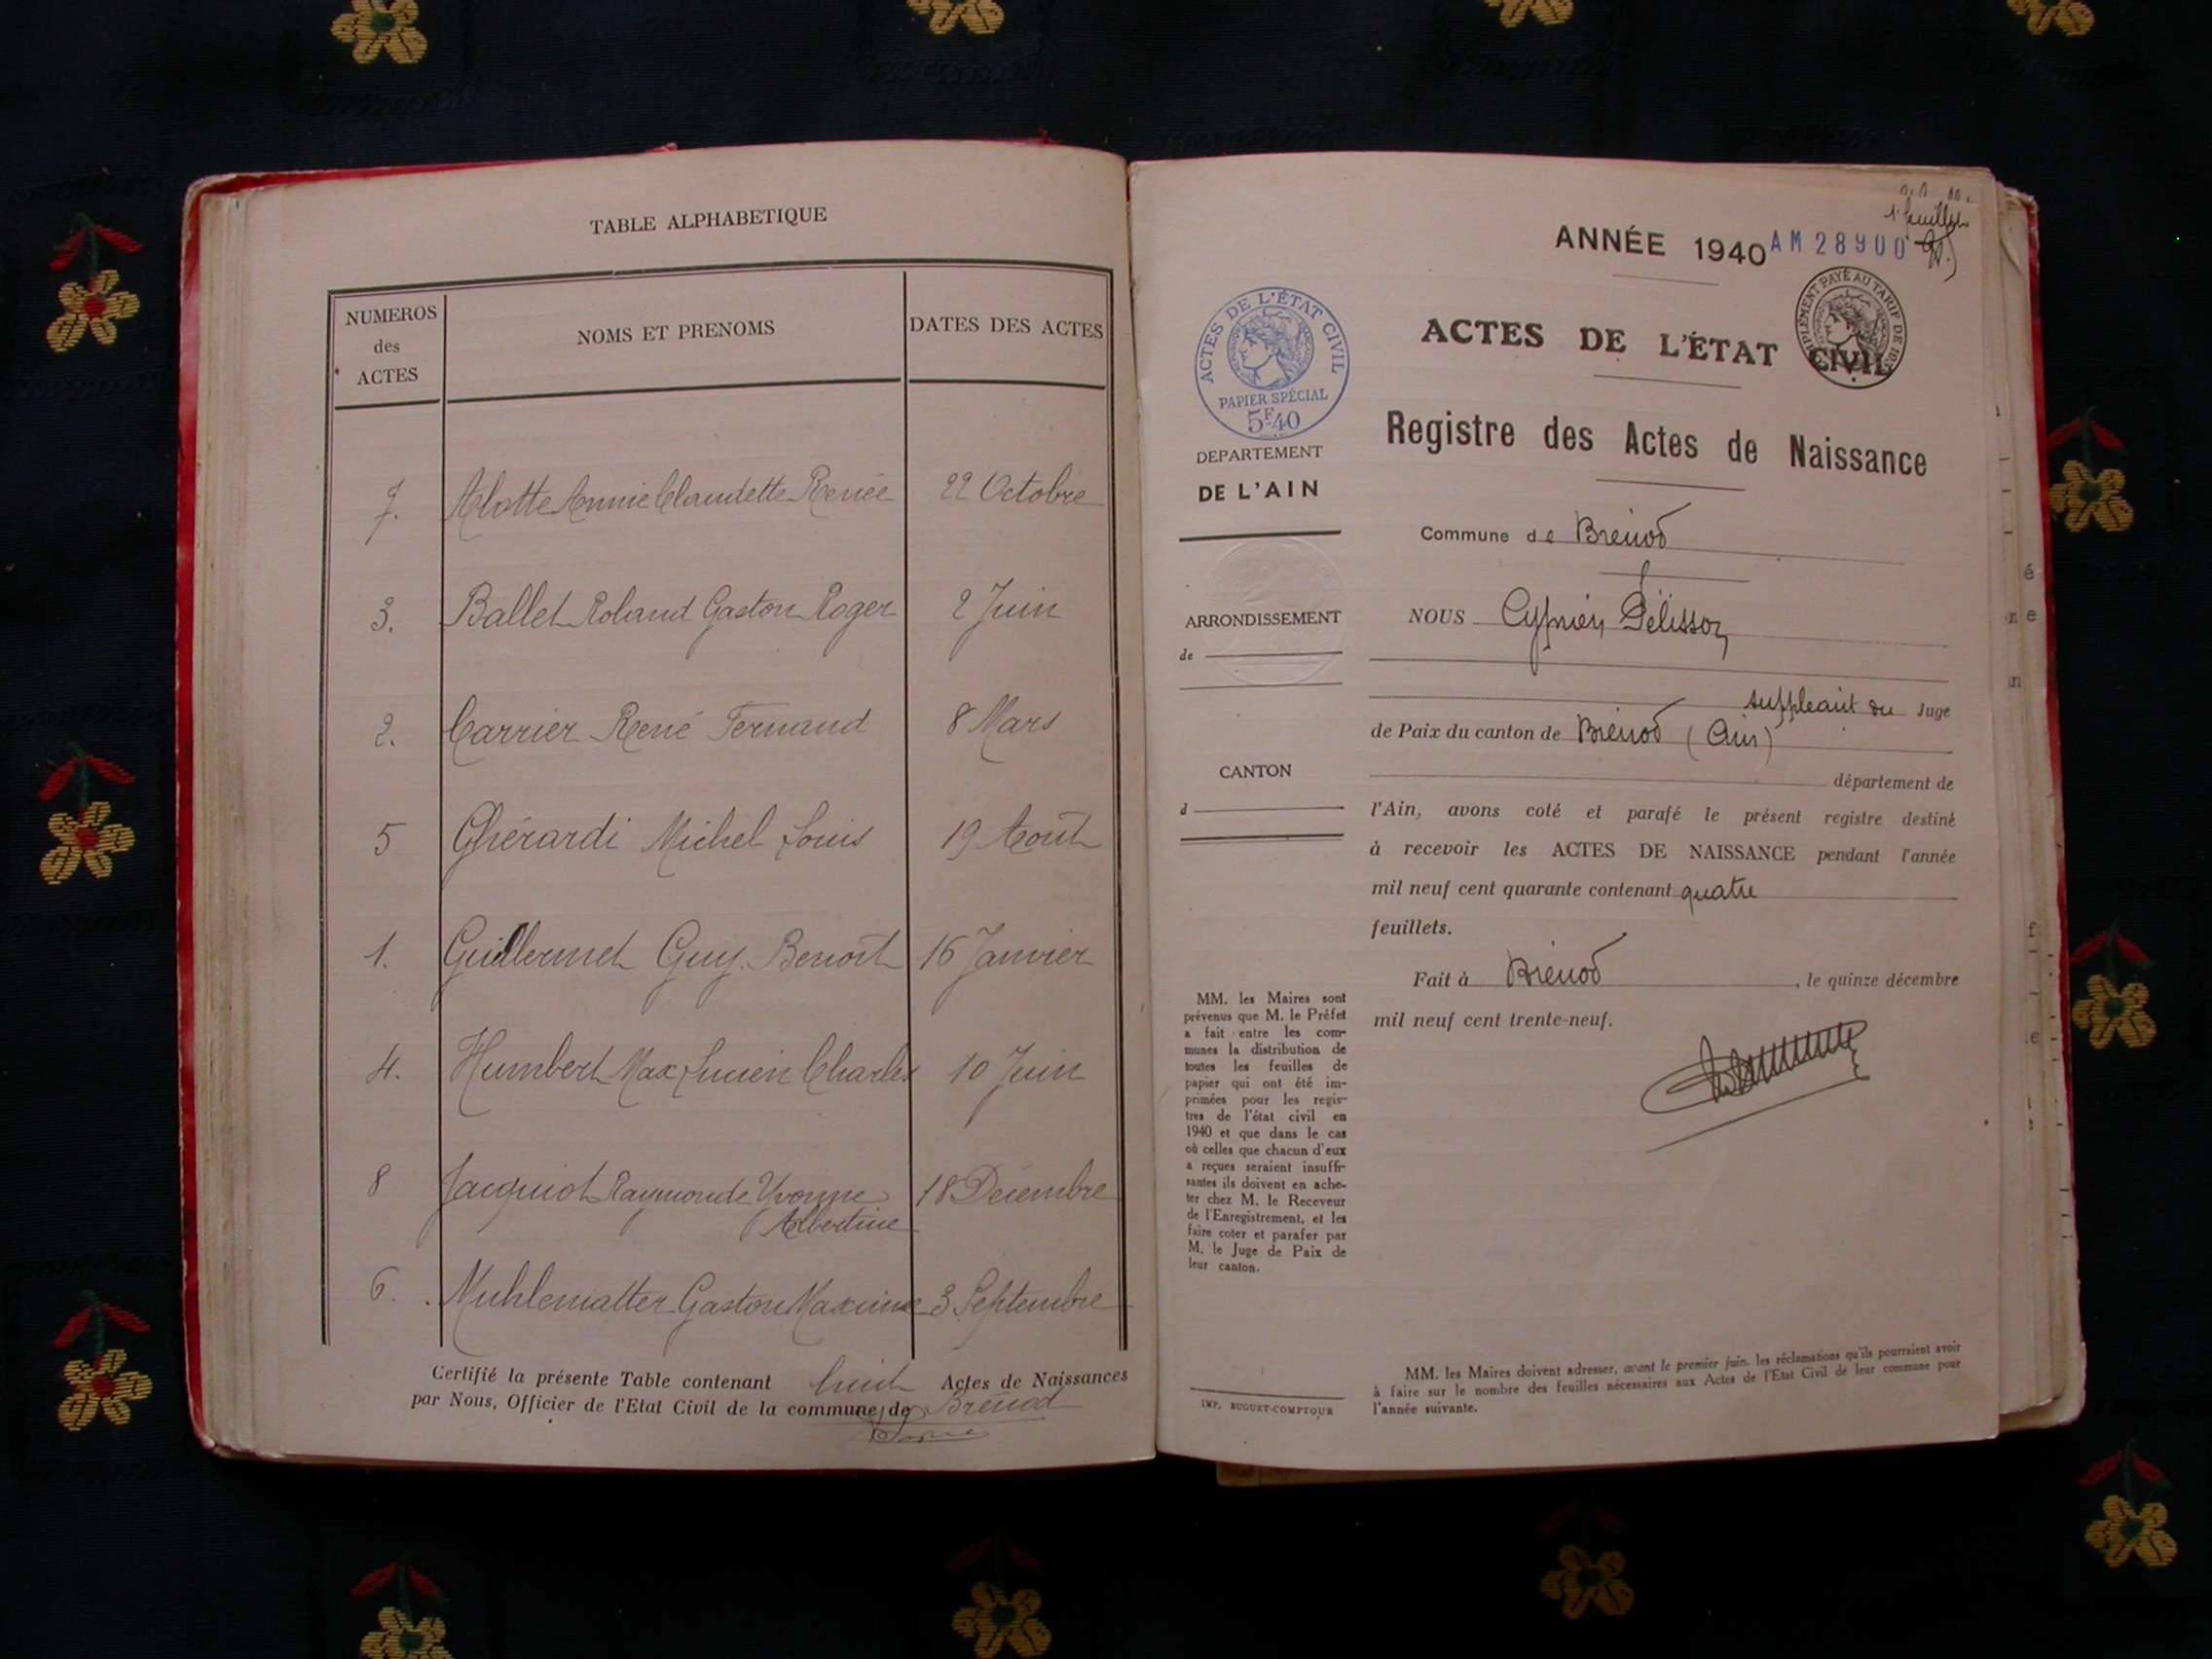 TABLE ALPHABETIQUE
NUMEROS
des
ACTES
NOMS ET PRENOMS
DATES DES ACTES
7. Alotte Annie Claudette Renée 22 Octobre
3. Ballet Roland Gaston Roger 2 Juin
2. Carrier René Fernand 8 Mars
5 Ghérardi Michel Louis 19 Août
1. Guillermet Guy Benoît 16 Janvier
4. Humbert Max Lucien Charles 10 Juin
8 Jacquiot Raymonde Yvonne 18 Décembre
Albertine
6. Muhlematter Gaston Maxime 3 Septembre
Certifié la présente Table contenant huit Actes de Naissances
par Nous, Officier de l'Etat Civil de la commune de Brénod
ANNÉE 1940 AM 28900
ACTES DE L'ÉTAT CIVIL
PAYÉ AU TARIF DE
ACTES DE L'ÉTAT CIVIL
PAPIER SPÉCIAL
5F40
Registre des Actes de Naissance
DEPARTEMENT
DE L'AIN
ARRONDISSEMENT
de
CANTON
d
Commune de Brénod
NOUS Cyprien Pélisson
suppléant du Juge
de Paix du canton de Brénod (Ain)
département de
l'Ain, avons coté et parafé le présent registre destiné
à recevoir les ACTES DE NAISSANCE pendant l'année
mil neuf cent quarante contenant quatre
feuillets.
Fait à Brénod, le quinze décembre
mil neuf cent trente-neuf.
MM. les Maires sont
prévenus que M. le Préfet
a fait entre les com-
munes la distribution de
toutes les feuilles de
papier qui ont été im-
primées pour les regis-
tres de l'état civil en
1940 et que dans le cas
où celles que chacun d'eux
a reçues seraient insuffi-
santes ils doivent en ache-
ter chez M. le Receveur
de l'Enregistrement, et les
faire coter et parafer par
M. le Juge de Paix de
leur canton.
IMP. BUGUET-COMPTOUR
MM. les Maires doivent adresser, avant le premier juin, les réclamations qu'ils pourraient avoir
à faire sur le nombre des feuilles nécessaires aux Actes de l'Etat Civil de leur commune pour
l'année suivante.